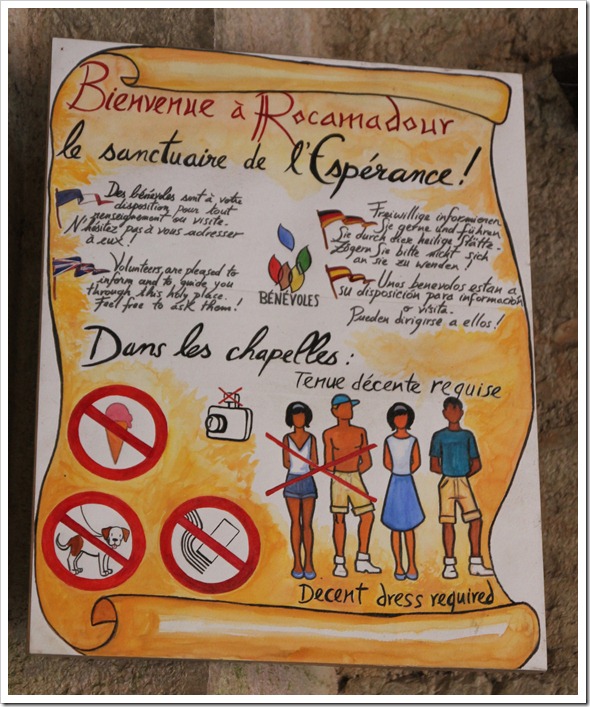 Bienvenue à Rocamadour
le sanctuaire de l'Espérance!
Des bénévoles sont à votre
disposition pour tout
renseignement ou visite.
N'hésitez pas à vous adresser
à eux!
Volunteers, are pleased to
inform and to guide you
through this holy place.
Feel free to ask them!
BÉNÉVOLES
Freiwillige informieren
Sie gerne und führen
Sie durch diese heilige Stätte.
Zögern Sie bitte nicht sich
an sie zu wenden!
Unos benevolos estan a
su disposición para información
o visita.
Pueden dirigirse a ellos!
Dans les chapelles:
Tenue décente requise
Decent dress required